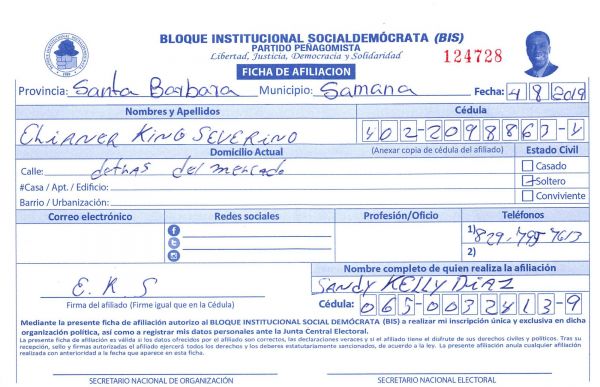 BLOQUE INSTITUCIONAL SOCIALDEMÓCRATA (BIS)
PARTIDO PEÑAGOMISTA
Libertad, Justicia, Democracia y Solidaridad
124728
FICHA DE AFILIACION
Provincia: Santa Barbara Municipio: Samana Fecha: 4 8 2019
Nombres y Apellidos Cédula
Elianer King Severino 402-2098863-1
Domicilio Actual (Anexar copia de cédula del afiliado) Estado Civil
Calle: dethas del mercado Casado
#Casa / Apt. / Edificio: Soltero
Barrio / Urbanización: Conviviente
Correo electrónico Redes sociales Profesión/Oficio Teléfonos
1) 829.795 7613
2)
Nombre completo de quien realiza la afiliación
E. K S Sandy Kelly Diaz
Firma del afiliado (Firme igual que en la Cédula) Cédula: 065-0032413-9
Mediante la presente ficha de afiliación autorizo al BLOQUE INSTITUCIONAL SOCIAL DEMÓCRATA (BIS) a realizar mi inscripción única y exclusiva en dicha
organización política, así como a registrar mis datos personales ante la Junta Central Electoral.
La presente ficha de afiliación es válida si los datos ofrecidos por el afiliado son correctos, las declaraciones veraces y si el afiliado tiene el disfrute de sus derechos civiles y políticos. Tras su
recepción, sello y firmas autorizadas el afiliado ejercerá todos los derechos y los deberes estatutariamente sancionados, de acuerdo a la ley. La presente afiliación anula cualquier afiliación
realizada con anterioridad a la fecha que aparece en esta ficha.
SECRETARIO NACIONAL DE ORGANIZACIÓN SECRETARIO NACIONAL ELECTORAL